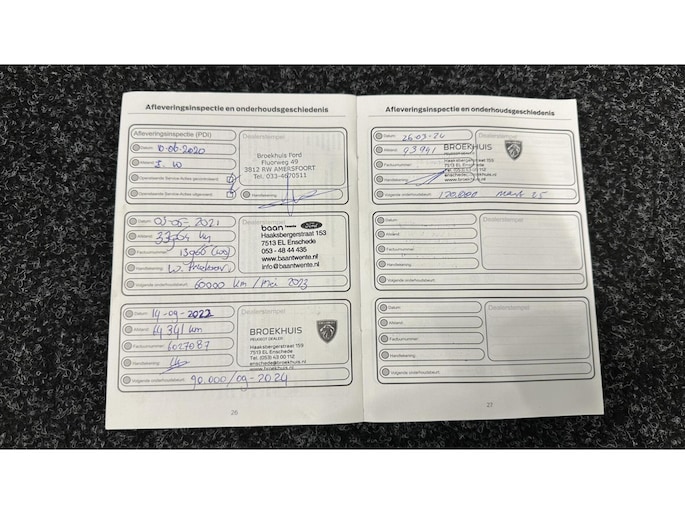 Afleveringsinspectie en onderhoudsgeschiedenis
Afleveringsinspectie (PDI)
Dealerstempel
Datum: 10-06-2020
Afstand:
Openstaande Service Acties gecontroleerd
Openstaande Service Acties
Broekhuis Ford
Fluorweg 49
3812 RW AMERSFOORT
Tel. 033-4670511
Datum: 03-05-2021
Afstand: km
Factuurnummer:
Handtekening:
Volgende onderhoudsbeurt: 60000 km / Mei 2023
Dealerstempel
baan twente Ford
Haaksbergerstraat 153
7513 EL Enschede
053 - 48 44 435
www.baantwente.nl
info@baantwente.nl
Datum: 14-09-2022
Afstand: 64341 km
Factuurnummer: 6027087
Handtekening:
Volgende onderhoudsbeurt: 90.000/09-2024
Dealerstempel
BROEKHUIS
PEUGEOT DEALER
Haaksbergerstraat 159
7513 EL Enschede
Tel. (053) 43 00 112
enschede@broekhuis.nl
www.broekhuis.nl
26
Afleveringsinspectie en onderhoudsgeschiedenis
Datum: 26-03-24
Afstand: 93941
Factuurnummer:
Handtekening:
Volgende onderhoudsbeurt: 120.000 maart 25
Dealerstempel
BROEKHUIS
Haaksbergerstraat 159
7513 EL Enschede
Datum:
Afstand:
Factuurnummer:
Handtekening:
Volgende onderhoudsbeurt:
Dealerstempel
Datum:
Afstand:
Factuurnummer:
Handtekening:
Volgende onderhoudsbeurt:
Dealerstempel
27